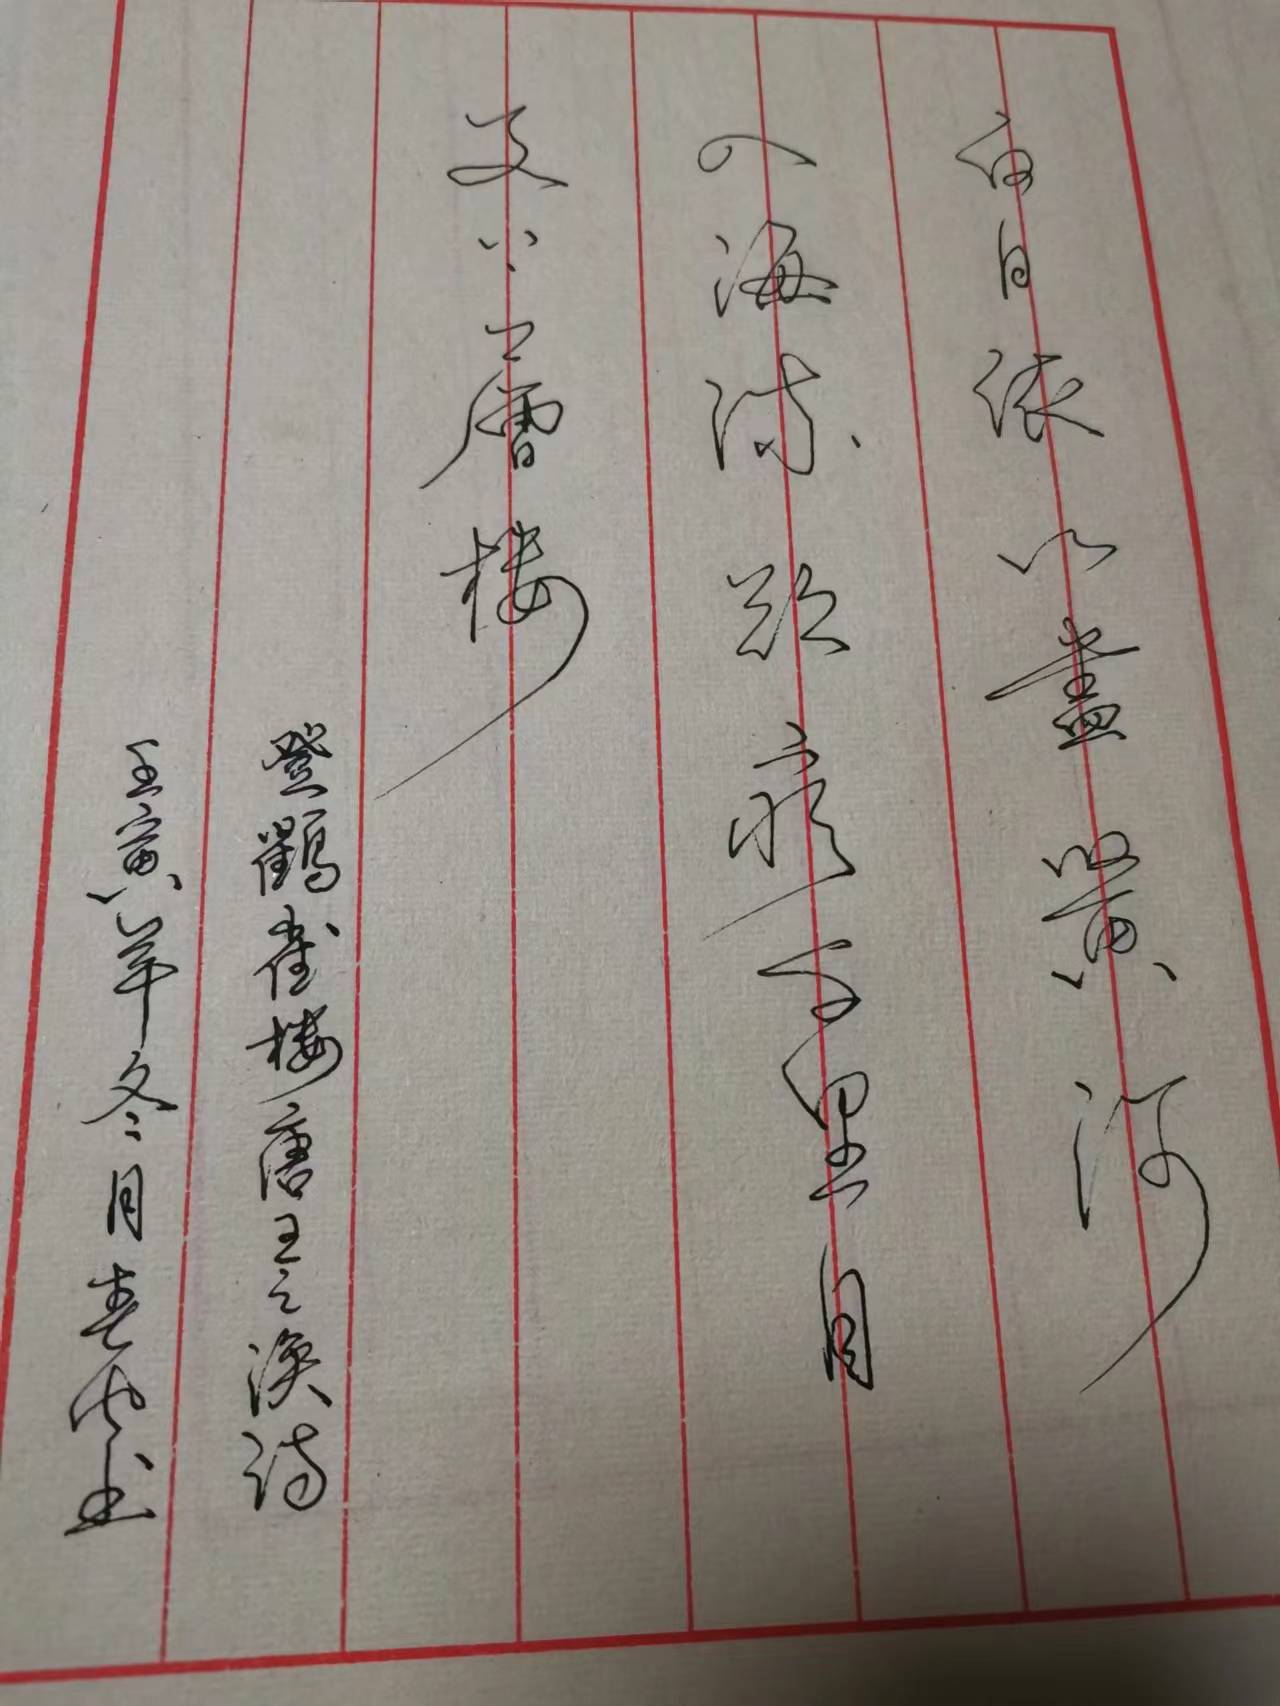 白日依山盡黄河
入海流欲窮千里目
更上一層楼
登鸛雀楼唐王之渙诗
壬寅年冬月书